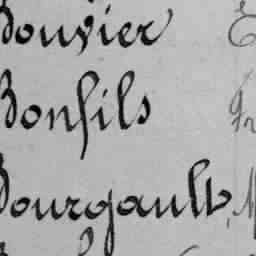 Bouvier
Bonfils
Bourgault